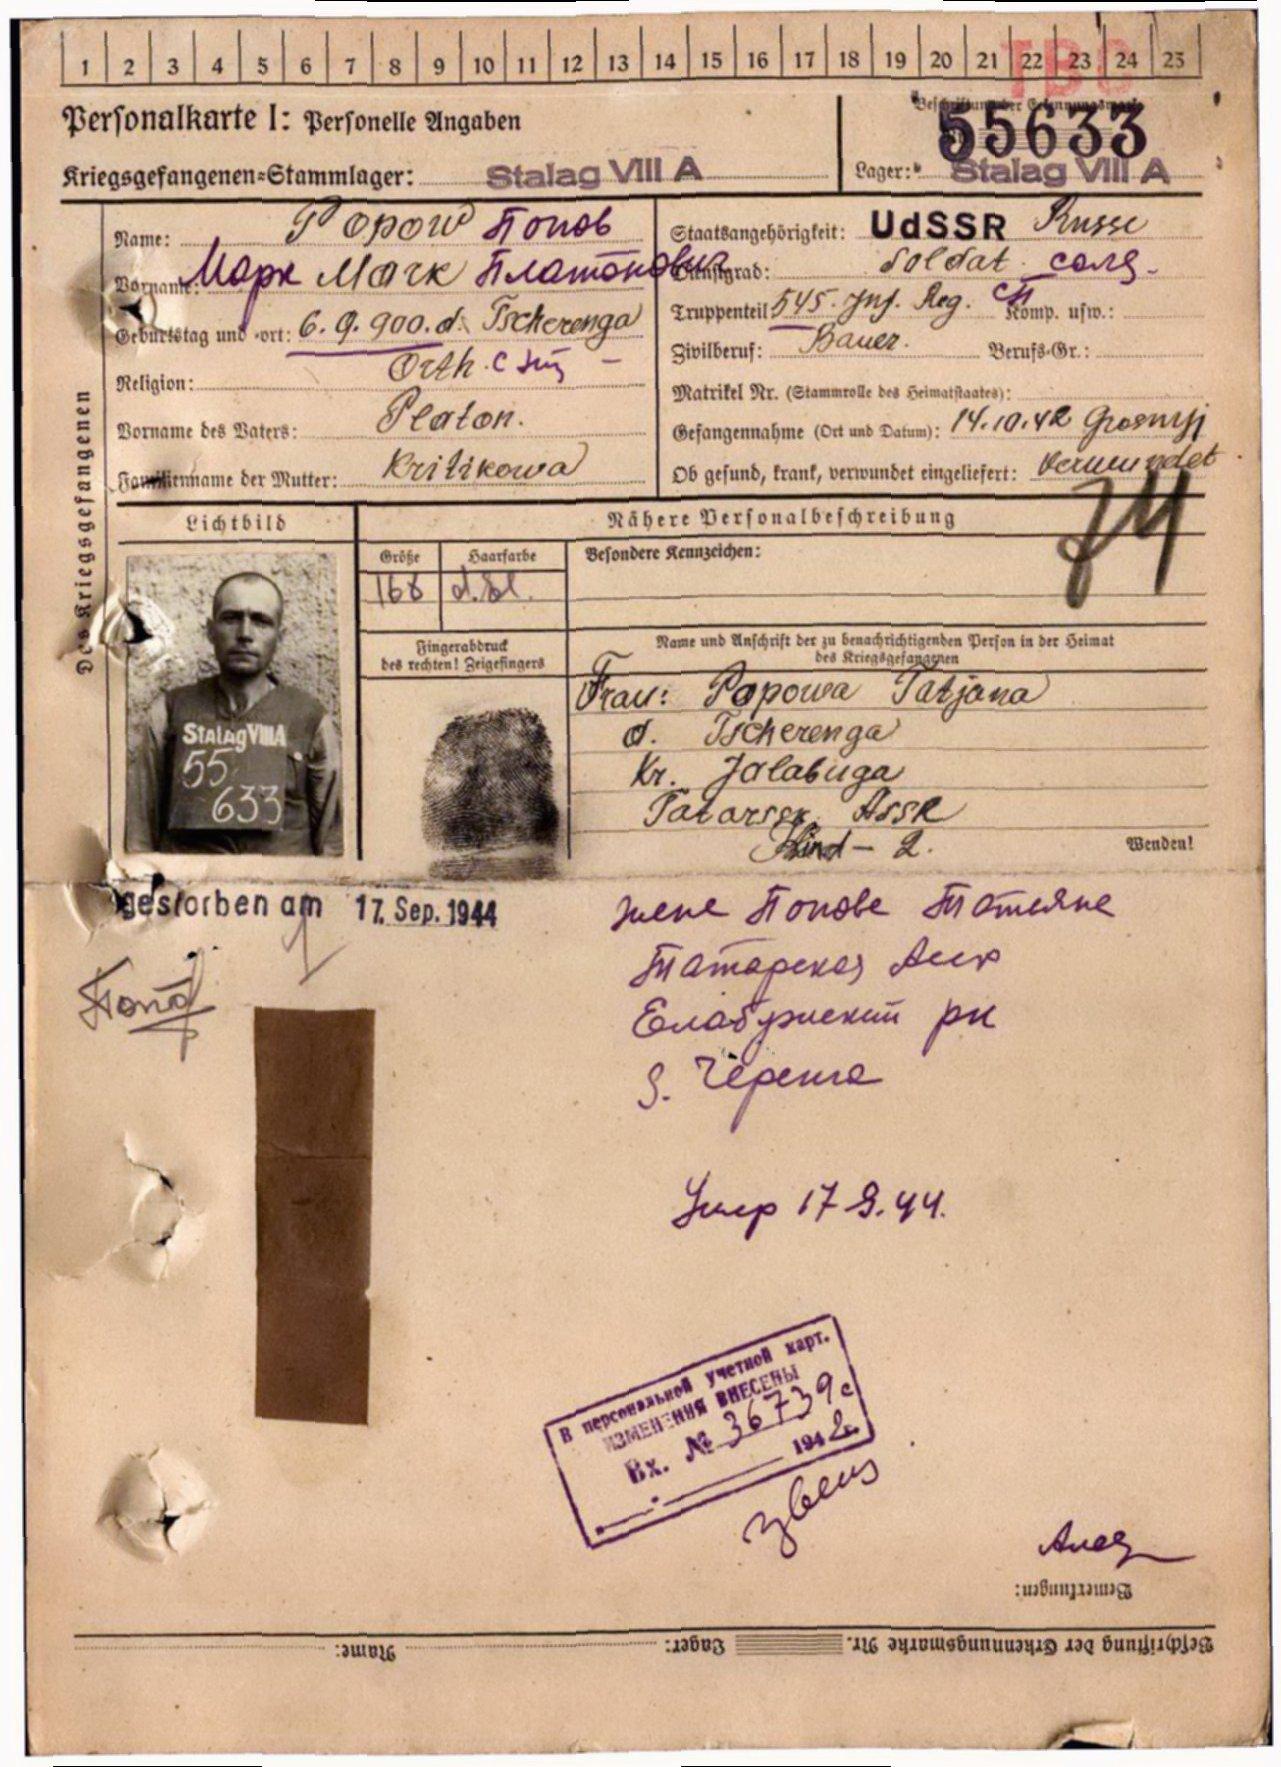 1 2 3 4 5 6 7 8 9 10 11 12 13 14 15 16 17 18 19 20 21 22 23 24 25
TBC
Personalkarte I: Personelle Angaben
Beschriftung der Erkennungsmarke
55633
Kriegsgefangenen-Stammlager: Stalag VIII A
Lager: Stalag VIII A
Des Kriegsgefangenen
Name: Popow Попов
Vorname: Марк Mark Платонович
Geburtstag und -ort: 6.9.900. d. Tscherenga
Religion: Orth.
Vorname des Vaters: Platon.
Familienname der Mutter: Kritikowa
Staatsangehörigkeit: UdSSR Russe
Dienstgrad: Soldat. солд.
Truppenteil 545. Inf. Reg. сп Komp. usw.:
Zivilberuf: Bauer. Berufs-Gr.:
Matrikel Nr. (Stammrolle des Heimatstaates):
Gefangennahme (Ort und Datum): 14.10.42 Grosnyj
Ob gesund, krank, verwundet eingeliefert: Verwundet.
Lichtbild
Nähere Personalbeschreibung
Größe
Haarfarbe
Besondere Kennzeichen:
168
d.bl.
Stalag VIII A
55
633
Fingerabdruck
des rechten! Zeigefingers
Name und Anschrift der zu benachrichtigenden Person in der Heimat
des Kriegsgefangenen
Frau: Popowa Tatjana
d. Tscherenga
Kr. Jalabuga
Tatarssk. ASSR
Kind - 2.
Wenden!
gestorben am 17. Sep. 1944
жене Попове Татьяне
Татарская Асср
Елабужский рн
д. Черенга
Умер 17.9.44.
В персональной учетной карт.
ИЗМЕНЕНИЯ ВНЕСЕНЫ
Вх. № 36739с
194 г.
Bemerkungen:
Beschriftung der Erkennungsmarke Nr. Lager: Name: